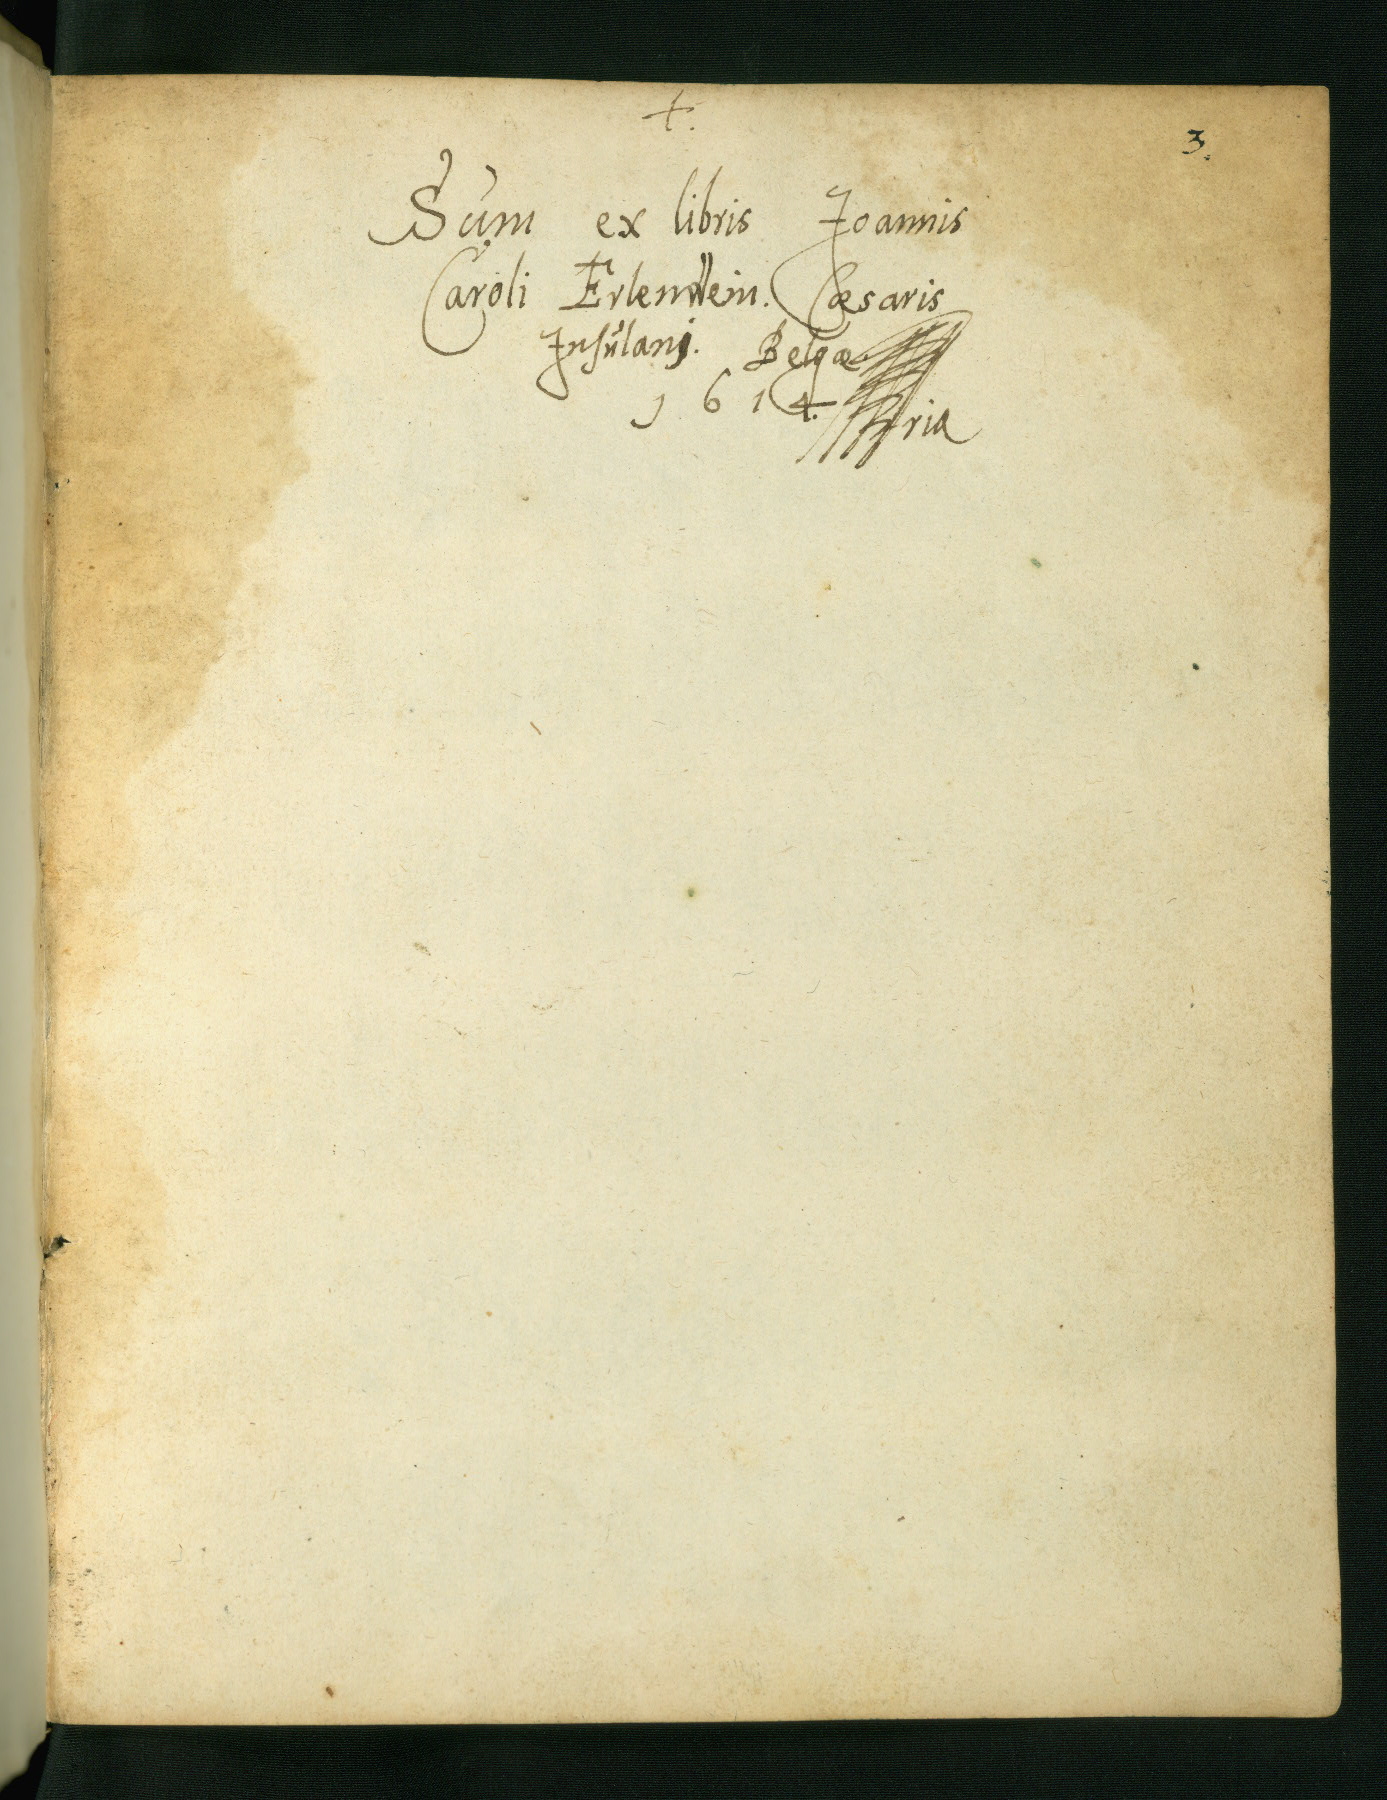 3.
Sum ex libris Joannis
Caroli Erlenwein. Cæsaris
Insulani. Belgæ
1614.